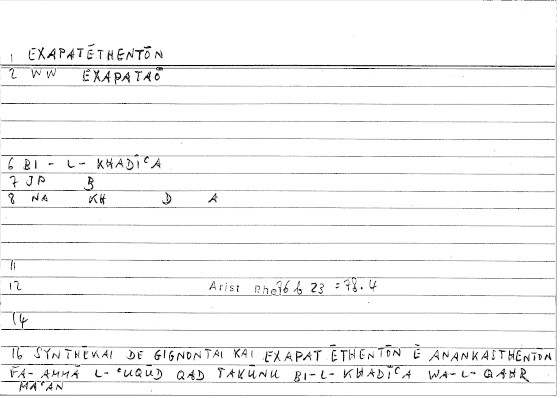 1 EXAPATĒTHENTŌN
2 WW EXAPATAŌ
6 BI - L - KHADĪʿA
7 JP B
8 NA KH D A
11
12 Arist Rhet 76 b 23 = 78.4
14
16 SYNTHĒKAI DE GIGNONTAI KAI EXAPATĒTHENTŌN Ē ANANKASTHENTŌN
FA-AMMĀ L-ʿUQŪD QAD TAKŪNU BI-L-KHADĪʿA WA-L-QAHR
MAʿAN